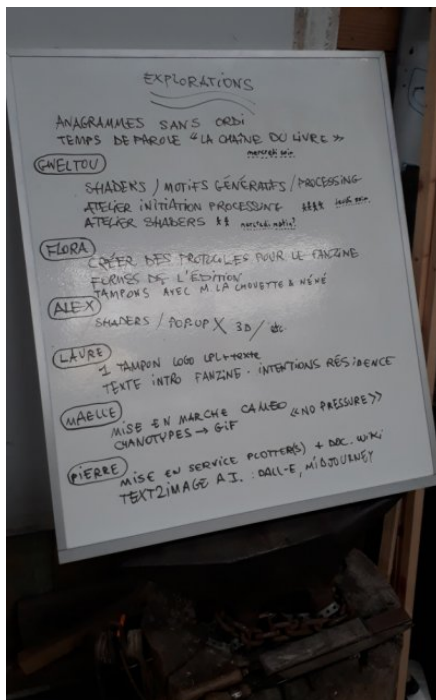 EXPLORATIONS
ANAGRAMMES SANS ORDI
TEMPS DE PAROLE "LA CHAÎNE DU LIVRE"
mercredi soir
GWELTOU
SHADERS / MOTIFS GÉNÉRATIFS / PROCESSING
ATELIER INITIATION PROCESSING **** jeudi soir
ATELIER SHADERS ** mercredi matin?
FLORA
CRÉER DES PROTOCOLES POUR LE FANZINE
FORMES DE L'ÉDITION
TAMPONS AVEC M LA CHOUETTE & NÉNÉ
ALEX
SHADERS / POP-UP X 3D / etc.
LAURE
1 TAMPON LOGO LPL + texte
TEXTE INTRO FANZINE. INTENTIONS RÉSIDENCE
MAELLE
MISE EN MARCHE CAMEO «NO PRESSURE»
CYANOTYPES → GIF
PIERRE
MISE EN SERVICE PLOTTER(S) + DOC. WIKI
TEXT2IMAGE A.I. : DALL-E, MIDJOURNEY